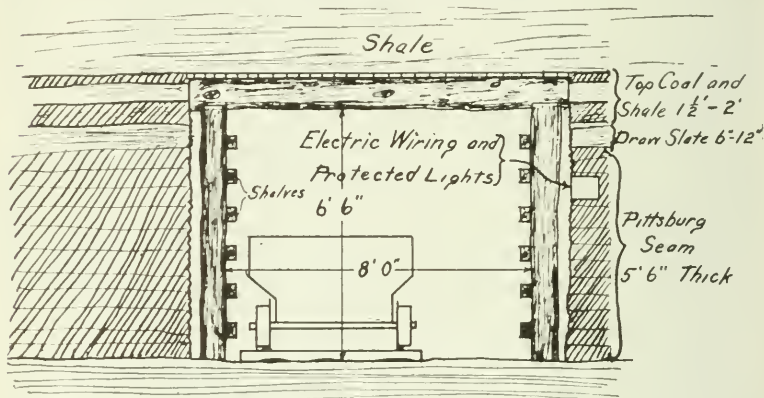 Shale
Top Coal and
Shale 1½'-2'
Draw Slate 6"-12"
Electric Wiring and
Protected Lights
Shelves
6' 6"
8' 0"
Pittsburg
Seam
5' 6" Thick